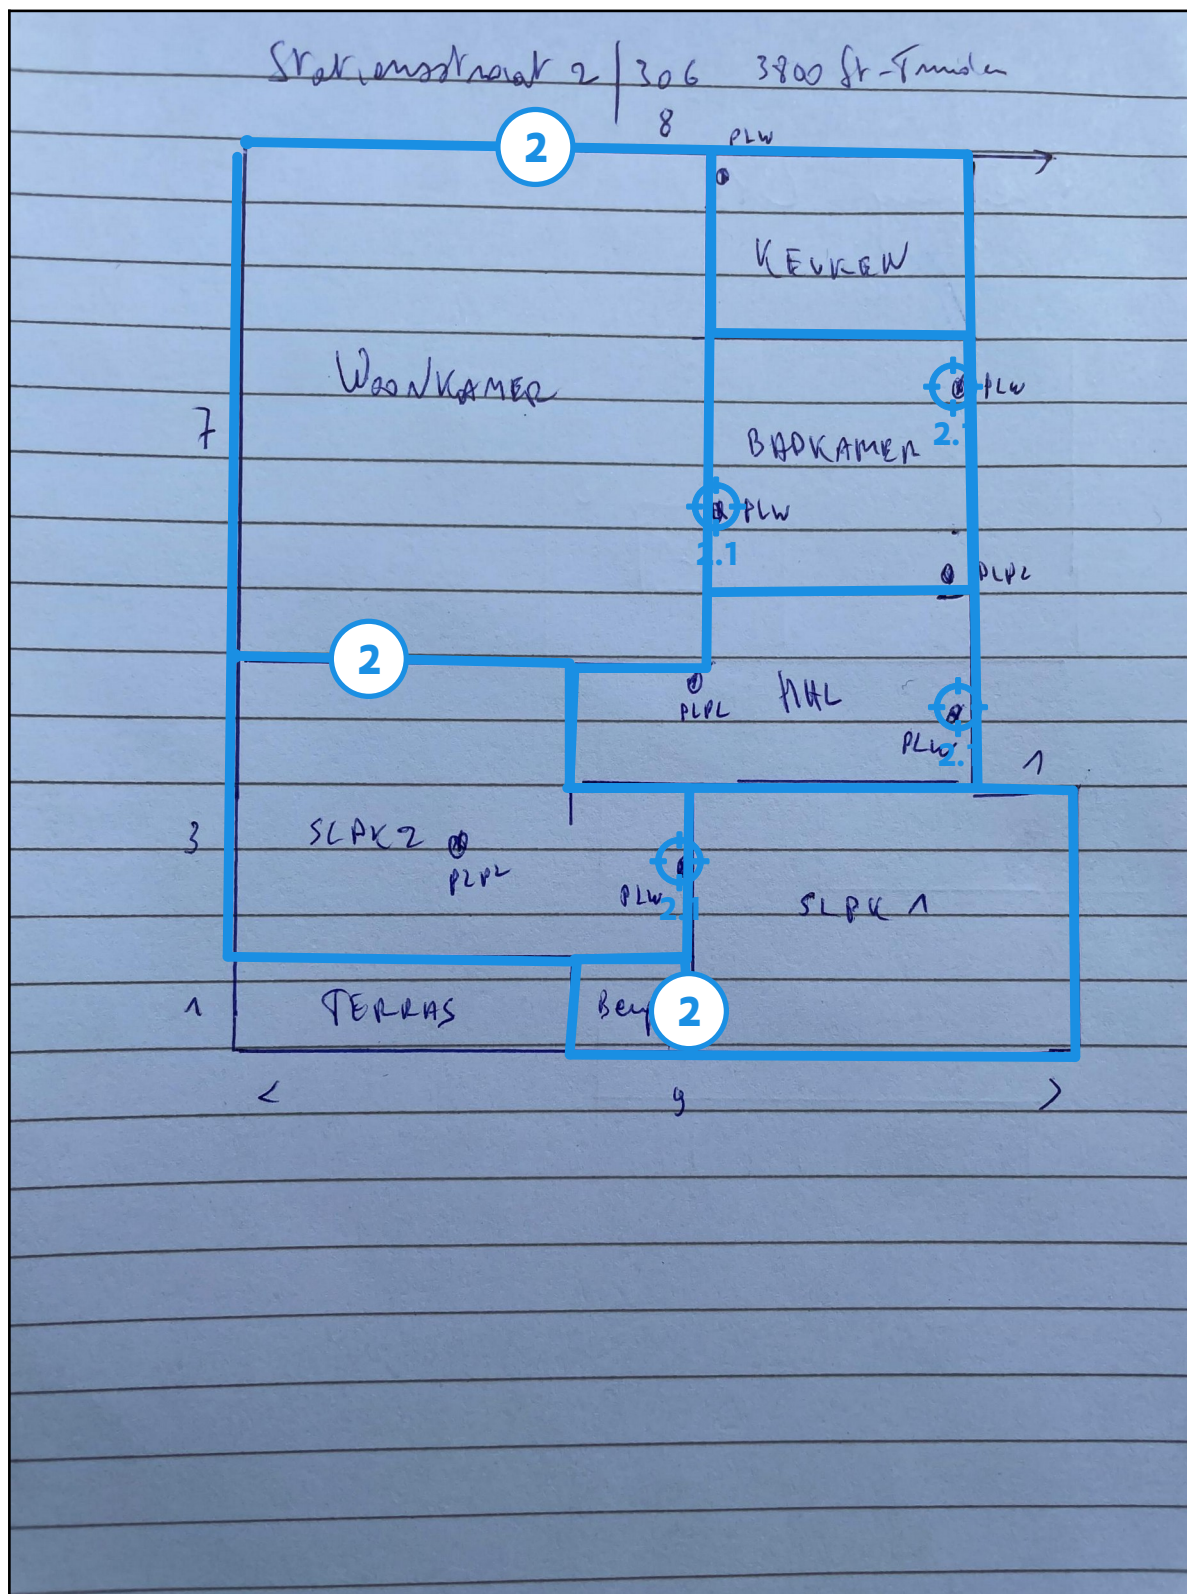 Stationsstraat 2/306 3800 St-Truiden
8
2
PLW
KEUKEN
WOONKAMER
PLW
2.1
7
BADKAMER
PLW
2.1
PLPL
2
HAL
PLPL
PLW
2.1
1
3
SLPK2
PLPL
PLW
2.1
SLPK 1
1
TERRAS
2
< 9 >